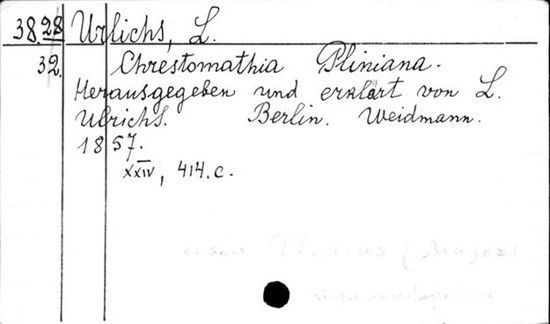 38.28 Urlichs, L.
32. Chrestomathia Pliniana.
Herausgegeben und erklärt von L.
Ulrichs. Berlin. Weidmann.
1857.
XXIV, 414.c.
Plinius (Major)